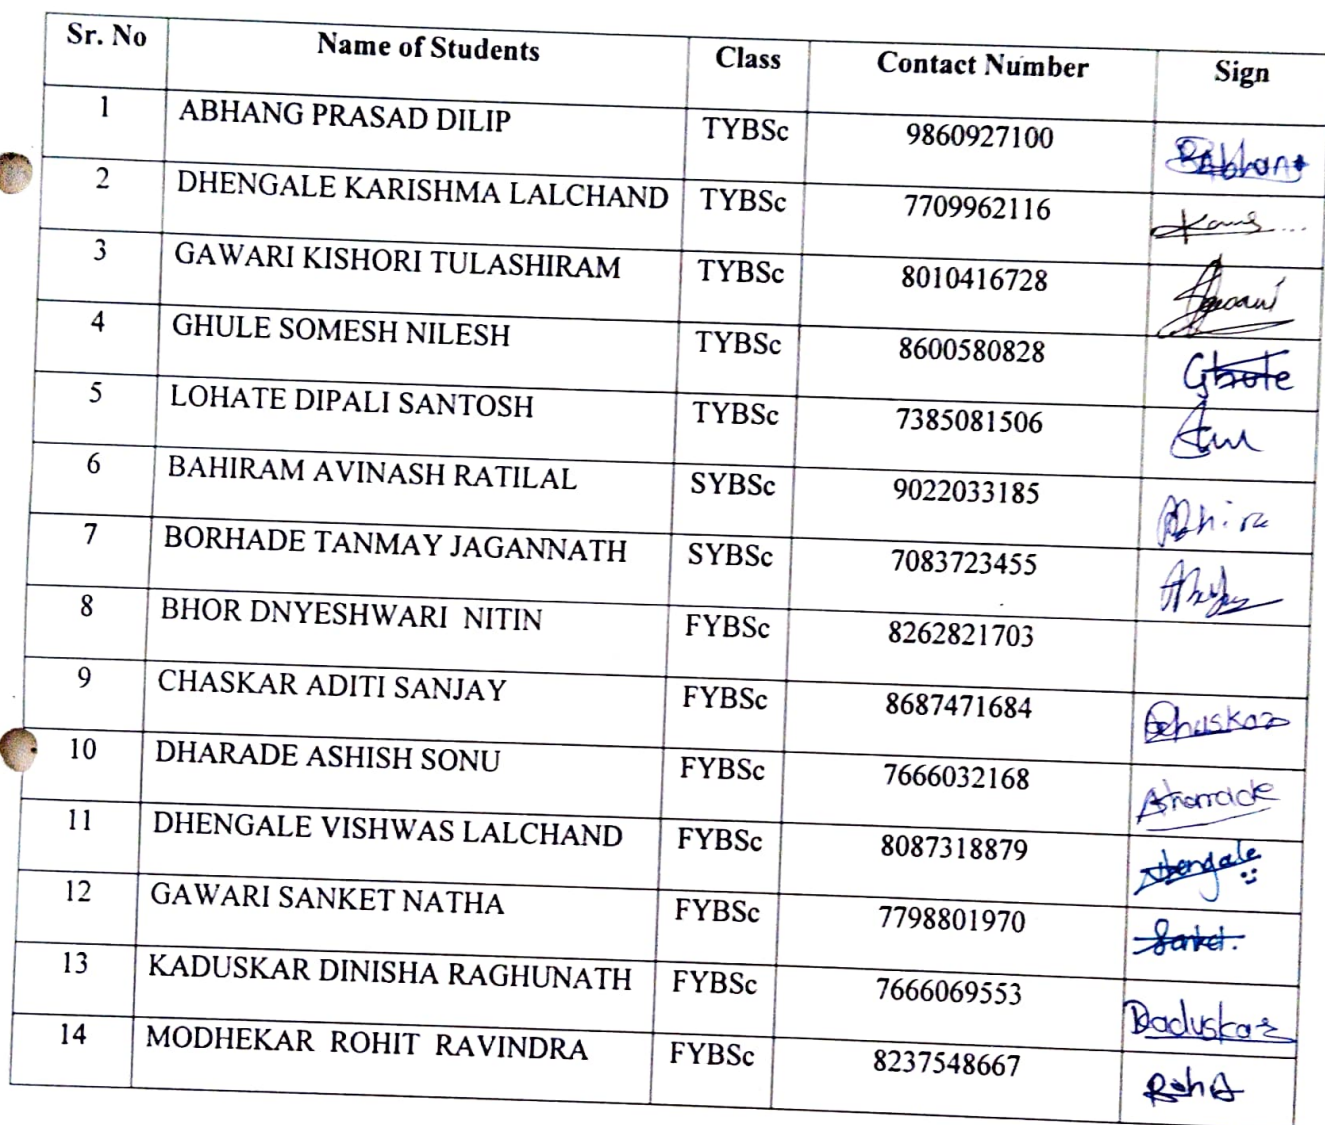 Sr. No Name of Students Class Contact Number Sign
1 ABHANG PRASAD DILIP TYBSc 9860927100
2 DHENGALE KARISHMA LALCHAND TYBSc 7709962116
3 GAWARI KISHORI TULASHIRAM TYBSc 8010416728
4 GHULE SOMESH NILESH TYBSc 8600580828 Ghule
5 LOHATE DIPALI SANTOSH TYBSc 7385081506
6 BAHIRAM AVINASH RATILAL SYBSc 9022033185
7 BORHADE TANMAY JAGANNATH SYBSc 7083723455
8 BHOR DNYESHWARI NITIN FYBSc 8262821703
9 CHASKAR ADITI SANJAY FYBSc 8687471684
10 DHARADE ASHISH SONU FYBSc 7666032168
11 DHENGALE VISHWAS LALCHAND FYBSc 8087318879
12 GAWARI SANKET NATHA FYBSc 7798801970 Sanket.
13 KADUSKAR DINISHA RAGHUNATH FYBSc 7666069553
14 MODHEKAR ROHIT RAVINDRA FYBSc 8237548667 Rohit